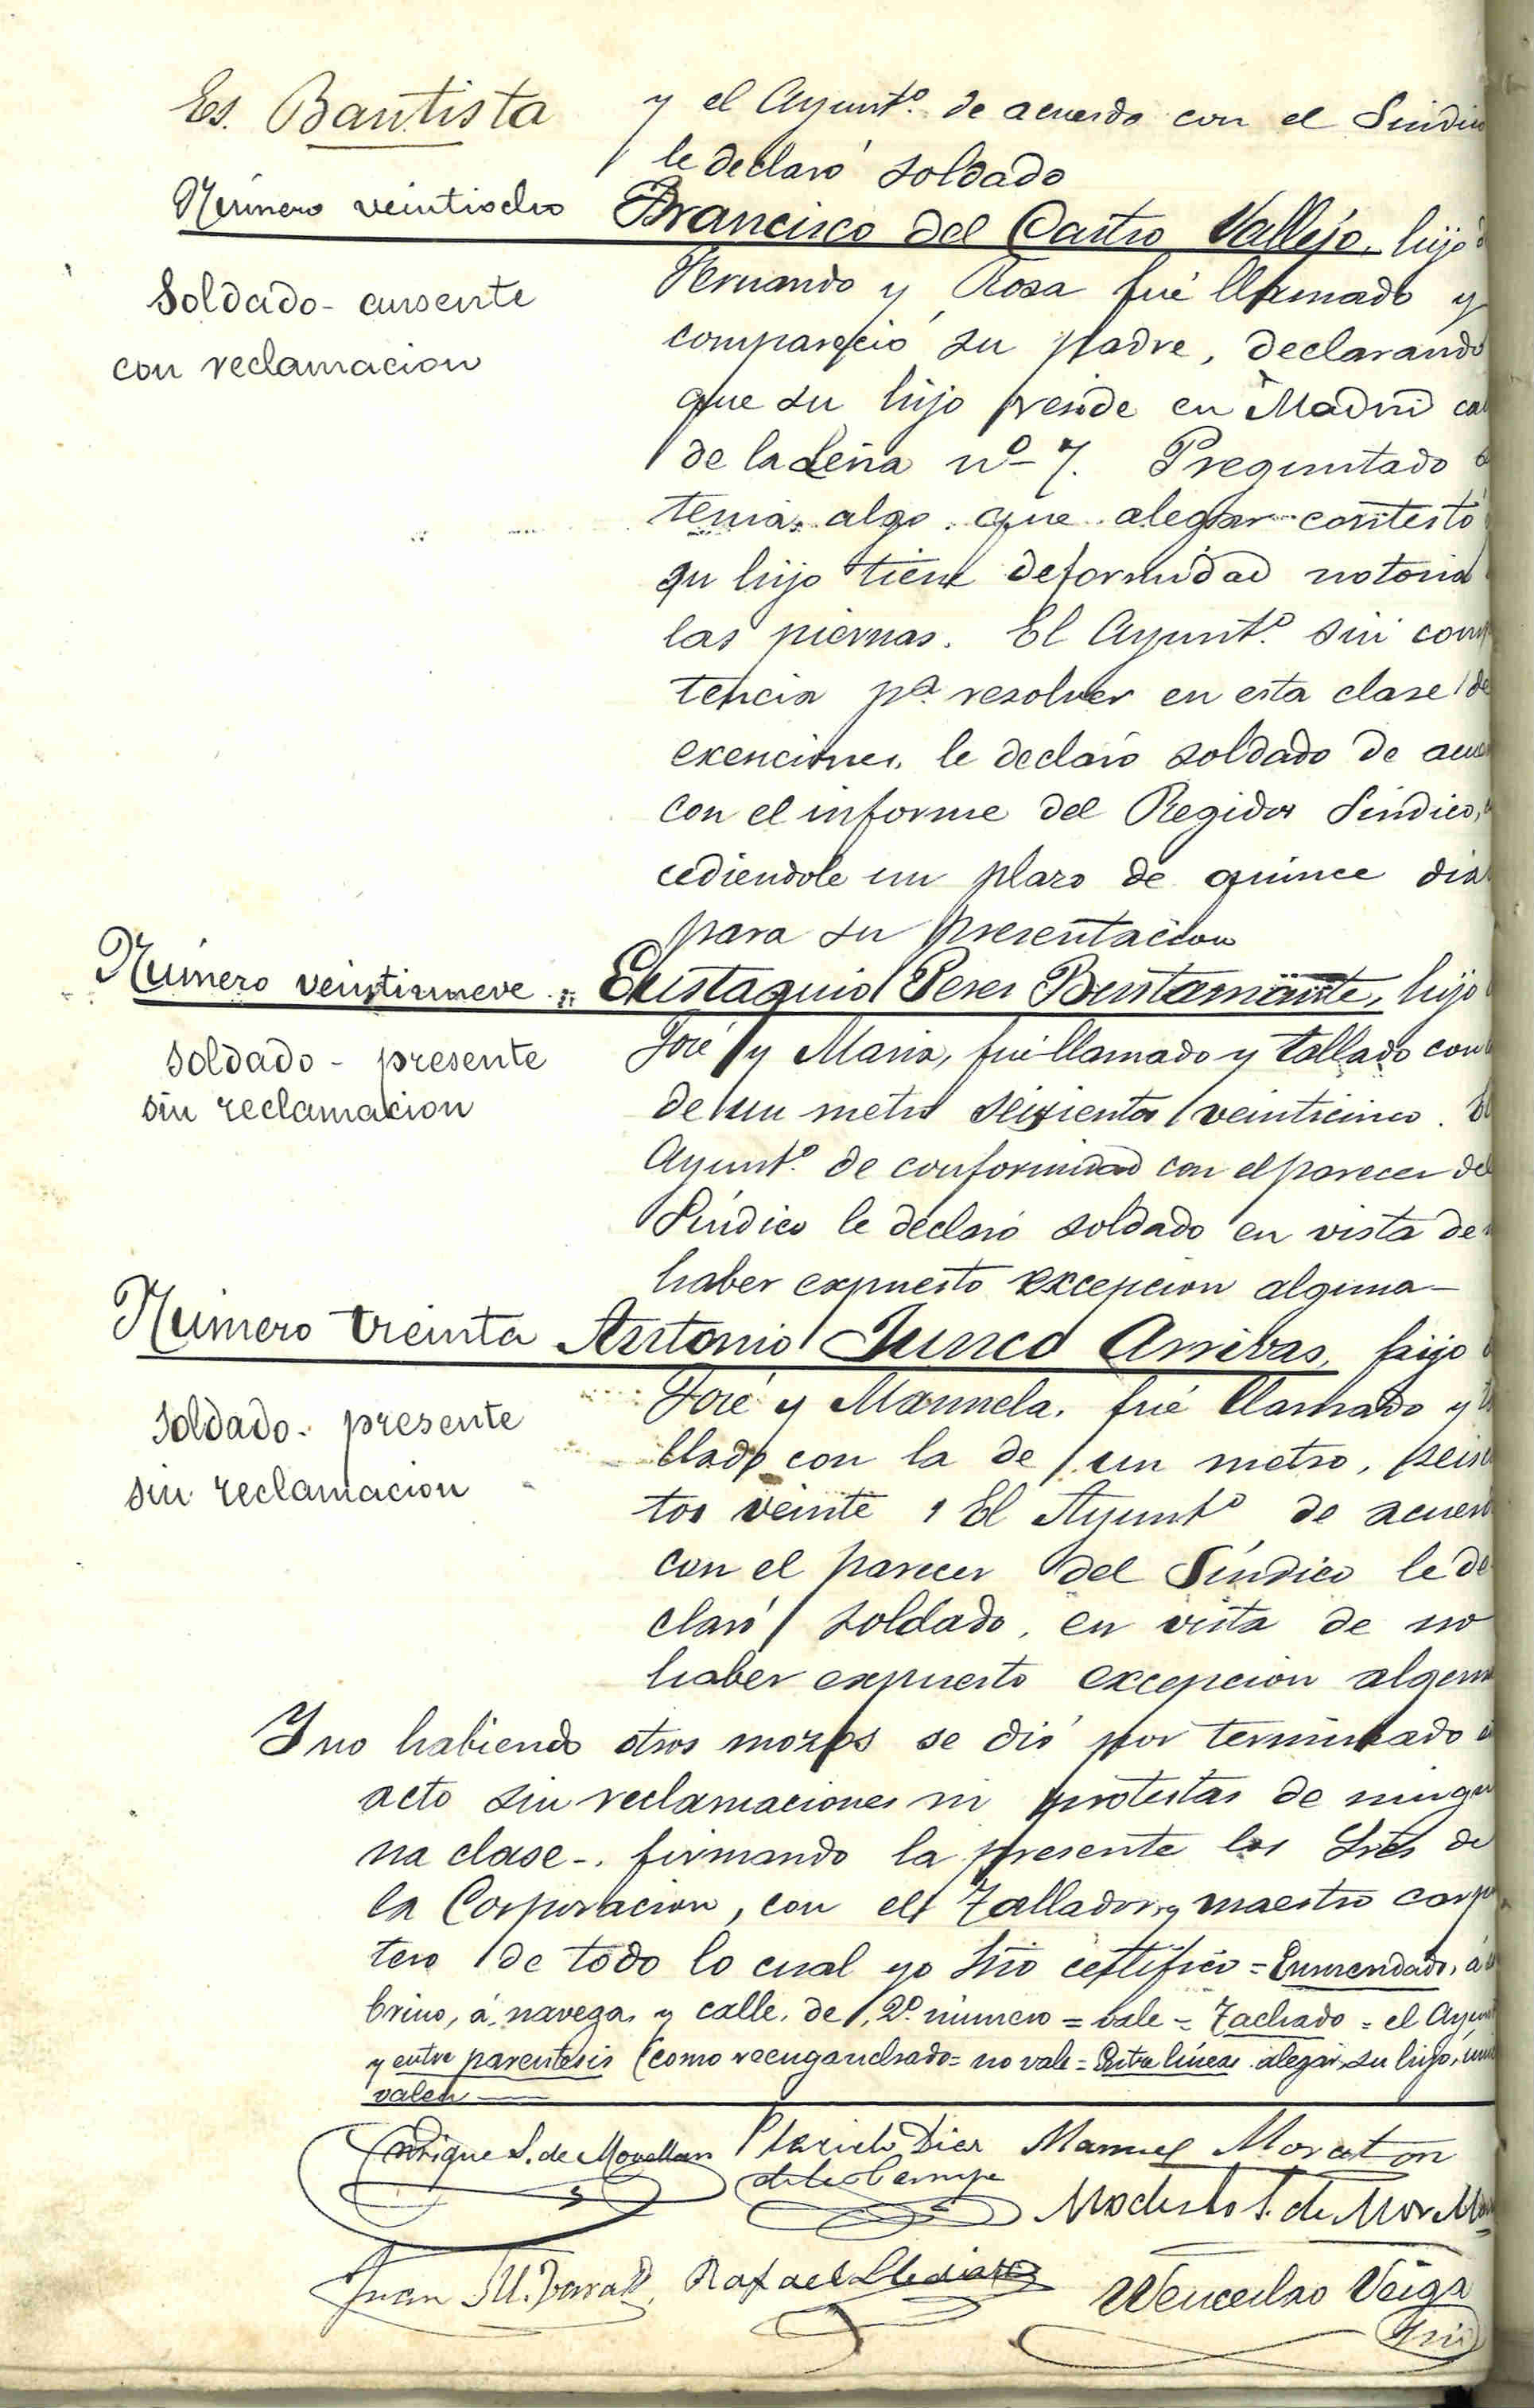 Es. Bautista
y el Ayuntº. de acuerdo con el Síndico
le declaró soldado
Número veintiocho Francisco del Castro Vallejo, hijo de
Soldado - ausente
con reclamacion
Fernando y Rosa fué llamado y
compareció su padre, declarando
que su hijo reside en Madrid ca
de la Leña nº 7. Preguntado
tenia algo que alegar contestó
qu hijo tiene deformidad notoria
las piernas. El Ayuntº. sin comp
tencia pª. resolver en esta clase de
exenciones, le declaró soldado de acue
con el informe del Regidor Síndico,
cediendole un plazo de quince dia
para su presentacion
Número veintinueve = Eustaquio Perez Bustamante, hijo
Soldado - presente
sin reclamacion
José y Maria, fué llamado y tallado con
de un metro seiscientos veinticinco. El
Ayuntº. de conformidad con el parecer del
Síndico le declaró soldado en vista de
haber expuesto excepcion alguna-
Número treinta Antonio Junco Arribas, hijo
Soldado - presente
sin reclamacion
José y Manuela, fué llamado y ta
llado con la de un metro, seisc
tos veinte, El Ayuntº de acuerd
con el parecer del Síndico le de
claró soldado, en vista de no
haber expuesto excepcion algun
Y no habiendo otros mozos se dió por terminado
acto sin reclamaciones ni protestas de ningu
na clase-. firmando la presente los Sres de
la Corporacion, con el Tallador y maestro carp
tero de todo lo cual yo Srio certifico = Enmendado, á
brino, á, navega, y calle, de, 2º. número = vale = Tachado = el Ayunt
y entre parentesis (como reenganchado = no vale = Entre líneas alegar, su hijo,
valen
Enrique S. de Movellan Placido Diaz Manuel
de la Campa
Modesto S. de Mov
Juan M. Rafael
Wenceslao Veiga
Srio